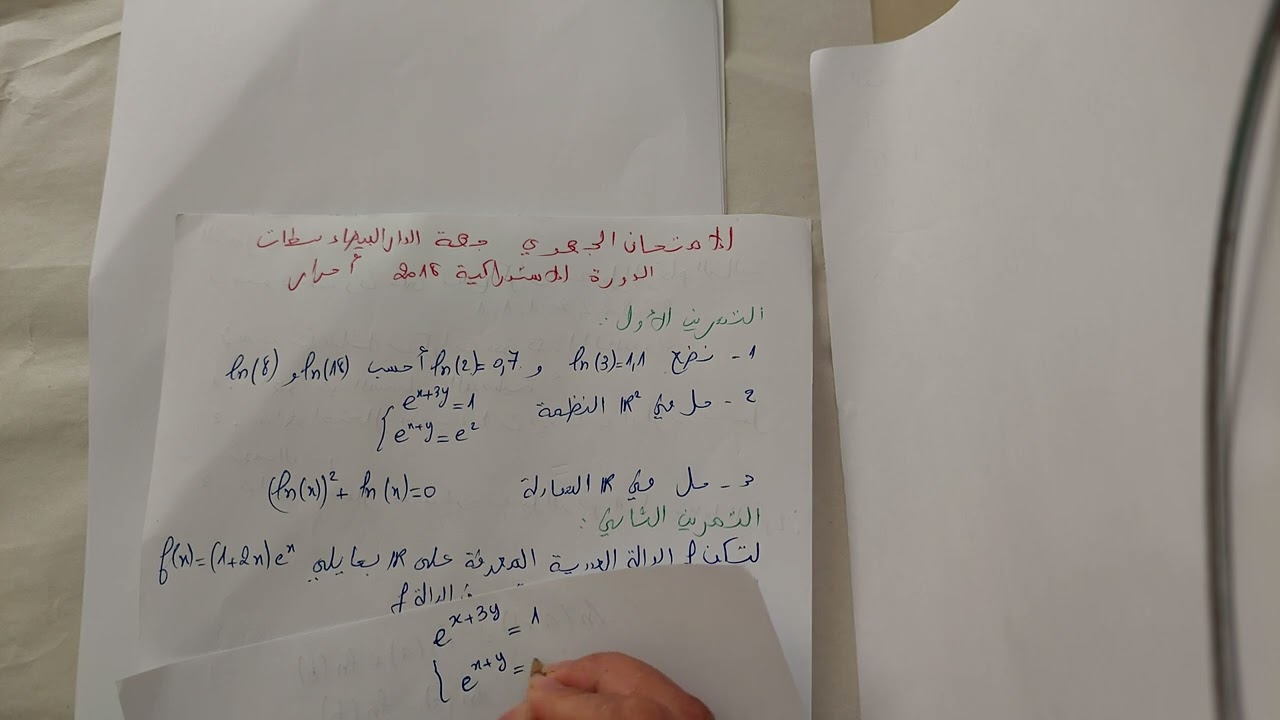 الامتحان الجهوي جهة الدار البيضاء سطات
الدورة الاستدراكية 2018 أحرار
التمرين الأول :
1 - نضع ln(3)=1,1 و ln(2)=0,7 أحسب ln(18) و ln(8)
2 - حل في IR² النظمة { e^{x+3y}=1
e^{x+y}=e^2
3 - حل في IR المعادلة (ln(x))²+ ln(x)=0
التمرين الثاني :
لتكن f الدالة العددية المعرفة على IR بما يلي f(x)=(1+2x)e^x
الدالة f
e^{x+3y} = 1
{ e^{x+y} =